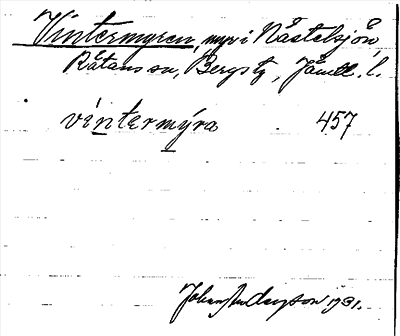 Vintermyren, myr i Nästelsjön,
Rätans sn, Bergs tg, Jämtl. l.
vintermýra 457
Johan Andersson 1931.